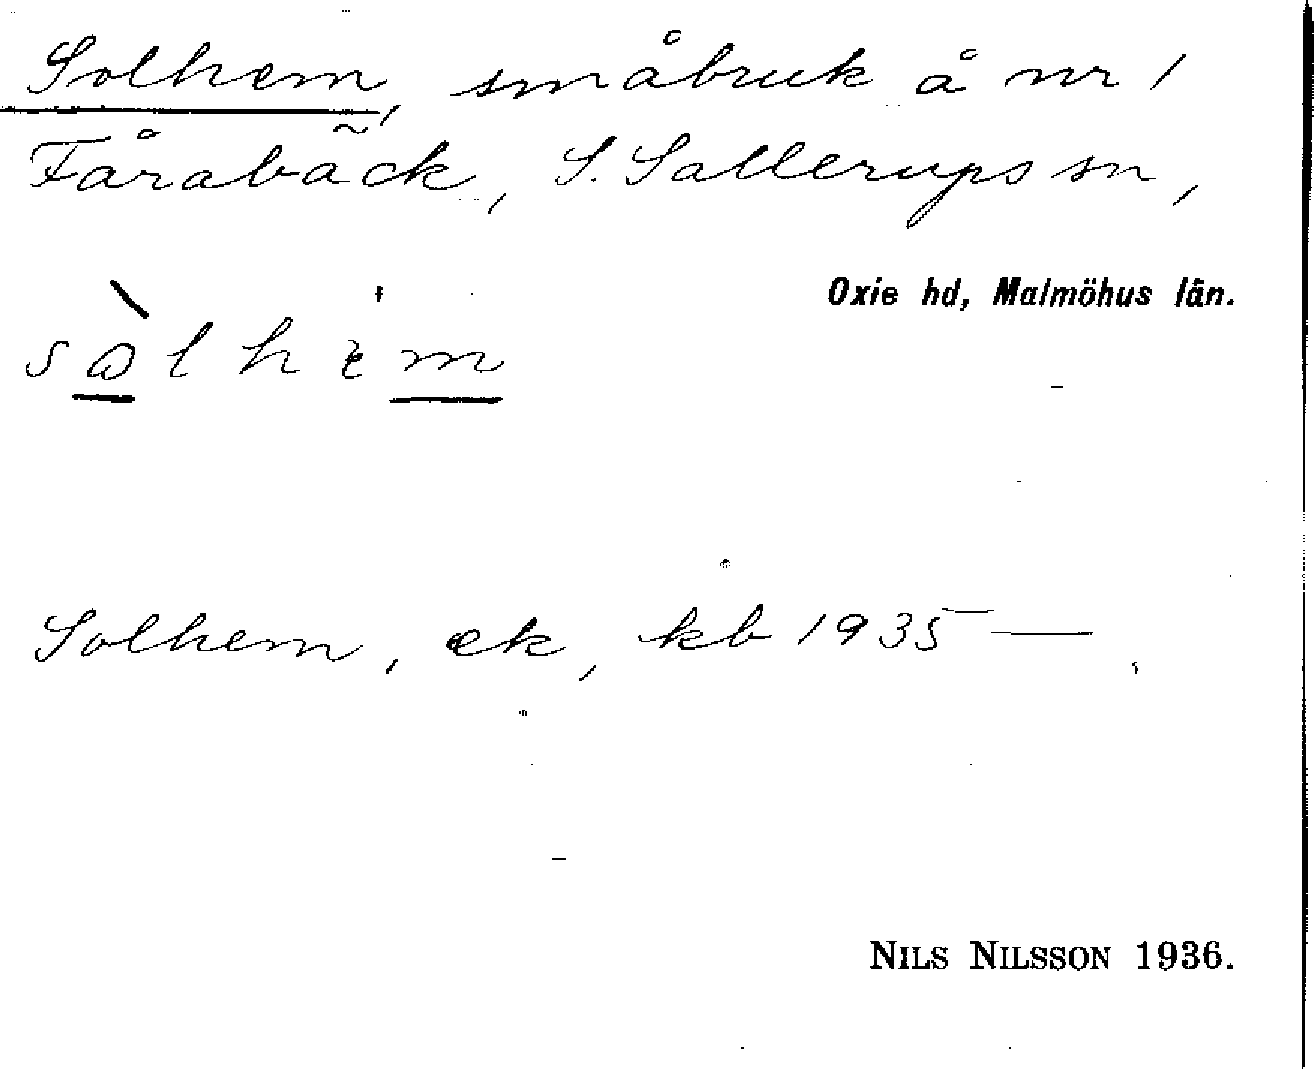 Solhem, småbruk å nr 1
Fårabäck, S. Sallerups sn,
Oxie hd, Malmöhus län.
sòlhem
Solhem, ek, kb 1935 —
NILS NILSSON 1936.